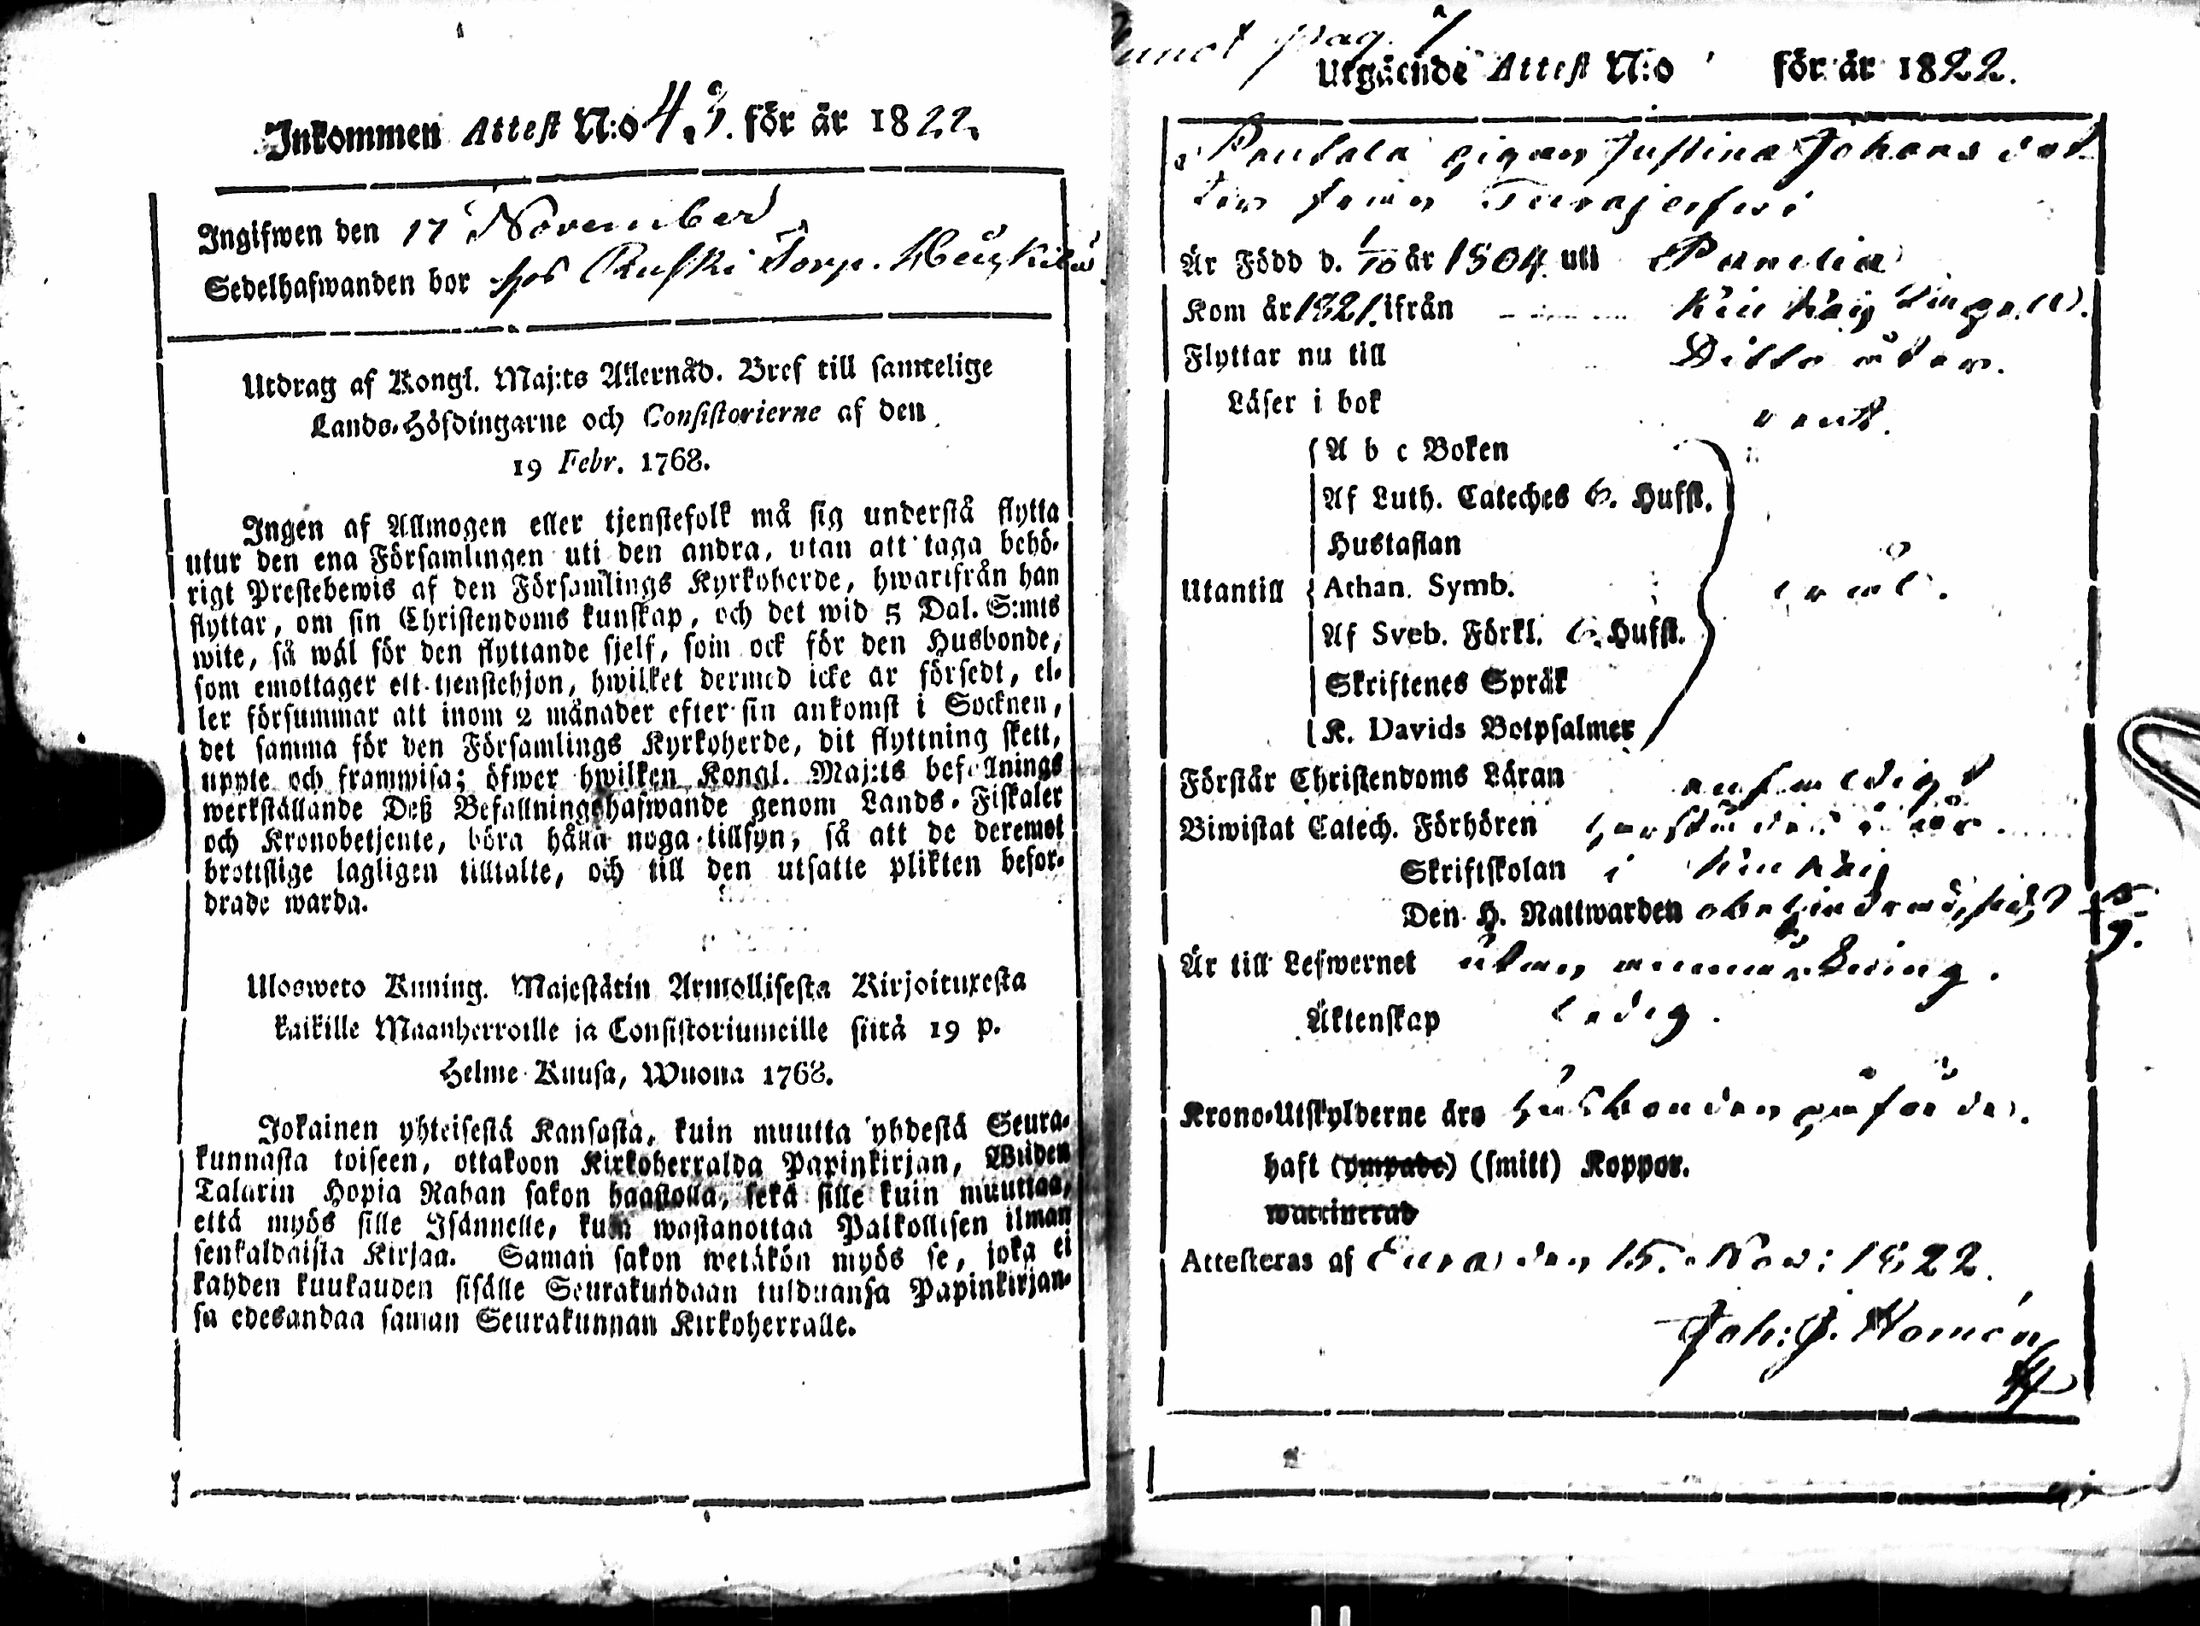 Inkommen Attest N:o 43. för år 1822.
Ingifwen den 17 November
Sedelhafwanden bor hos Ruski Torp.
Utdrag af Kongl. Maj:ts Allernåd. Bref till samtelige
Lands-Höfdingarne och Consistorierne af den
19 Febr. 1768.
Ingen af Allmogen eller tjenstefolk må sig understå flytta
utur den ena Församlingen uti den andra, utan att taga behö-
rigt Prestebewis af den Församlings Kyrkoherde, hwarifrån han
flyttar, om sin Christendoms kunskap, och det wid 5 Dal. S:mts
wite, så wäl för den flyttande sjelf, som ock för den Husbonde,
som emottager ett tjenstehjon, hwilket dermed icke är försedt, el-
ler försummar att inom 2 månader efter sin ankomst i Socknen,
det samma för den Församlings Kyrkoherde, dit flyttning skett,
uppte och framwisa; öfwer hwilken Kongl. Maj:ts befallnings
werkställande Deß Befallningshafwande genom Lands-Fiskaler
och Kronobetjente, böra hålla noga tillsyn, så att de deremot
brottslige lagligen tilltalte, och till den utsatte plikten befor-
drade warda.
Ulosweto Kuning. Majestätin Armollisesta Kirjoituxesta
kaikille Maanherroille ja Consistoriumeille siitä 19 p.
Helme Kuusa, Wuona 1768.
Jokainen yhteisestä Kansasta, kuin muutta yhdestä Seura-
kunnasta toiseen, ottakoon Kirkoherralda Papinkirjan, Wiiden
Talarin Hopia Rahan sakon haastolla, sekä sille kuin muuttaa,
että myös sille Isännelle, kuin wastanottaa Palkollisen ilman
senkaldaista Kirjaa. Saman sakon wetäkön myös se, joka ei
kahden kuukauden sisälle Seurakundaan tulduansa Papinkirjan-
sa edesandaa saman Seurakunnan Kirkoherralle.
pag. 7
Utgående Attest N:o för år 1822.
Pigan Justina Johans dot
ter från Turajerfwi
Är Född d. 1/10 år 1804 uti Panelia
Kom år 1821. ifrån Kiukais
Flyttar nu till Ditto åter.
Läser i bok rent.
A b c Boken
Af Luth. Cateches 6. Hufst.
Hustaflan
Utantill Athan. Symb.
Af Sveb. Förkl. 6. Hufst.
Skriftenes Språk
K. Davids Botpsalmer
Förstår Christendoms Läran
Biwistat Catech. Förhören
Skriftskolan i Kiukais
Den H. Nattwarden 5/9.
Är till Lefwernet utan anmärkning.
Äktenskap ledig.
Krono-Utskylderne äro husbonden påförde.
haft (ympade) (smitt) Koppor.
waccinerad
Attesteras af Eura den 15. Nov: 1822.
Joh: J. Homén